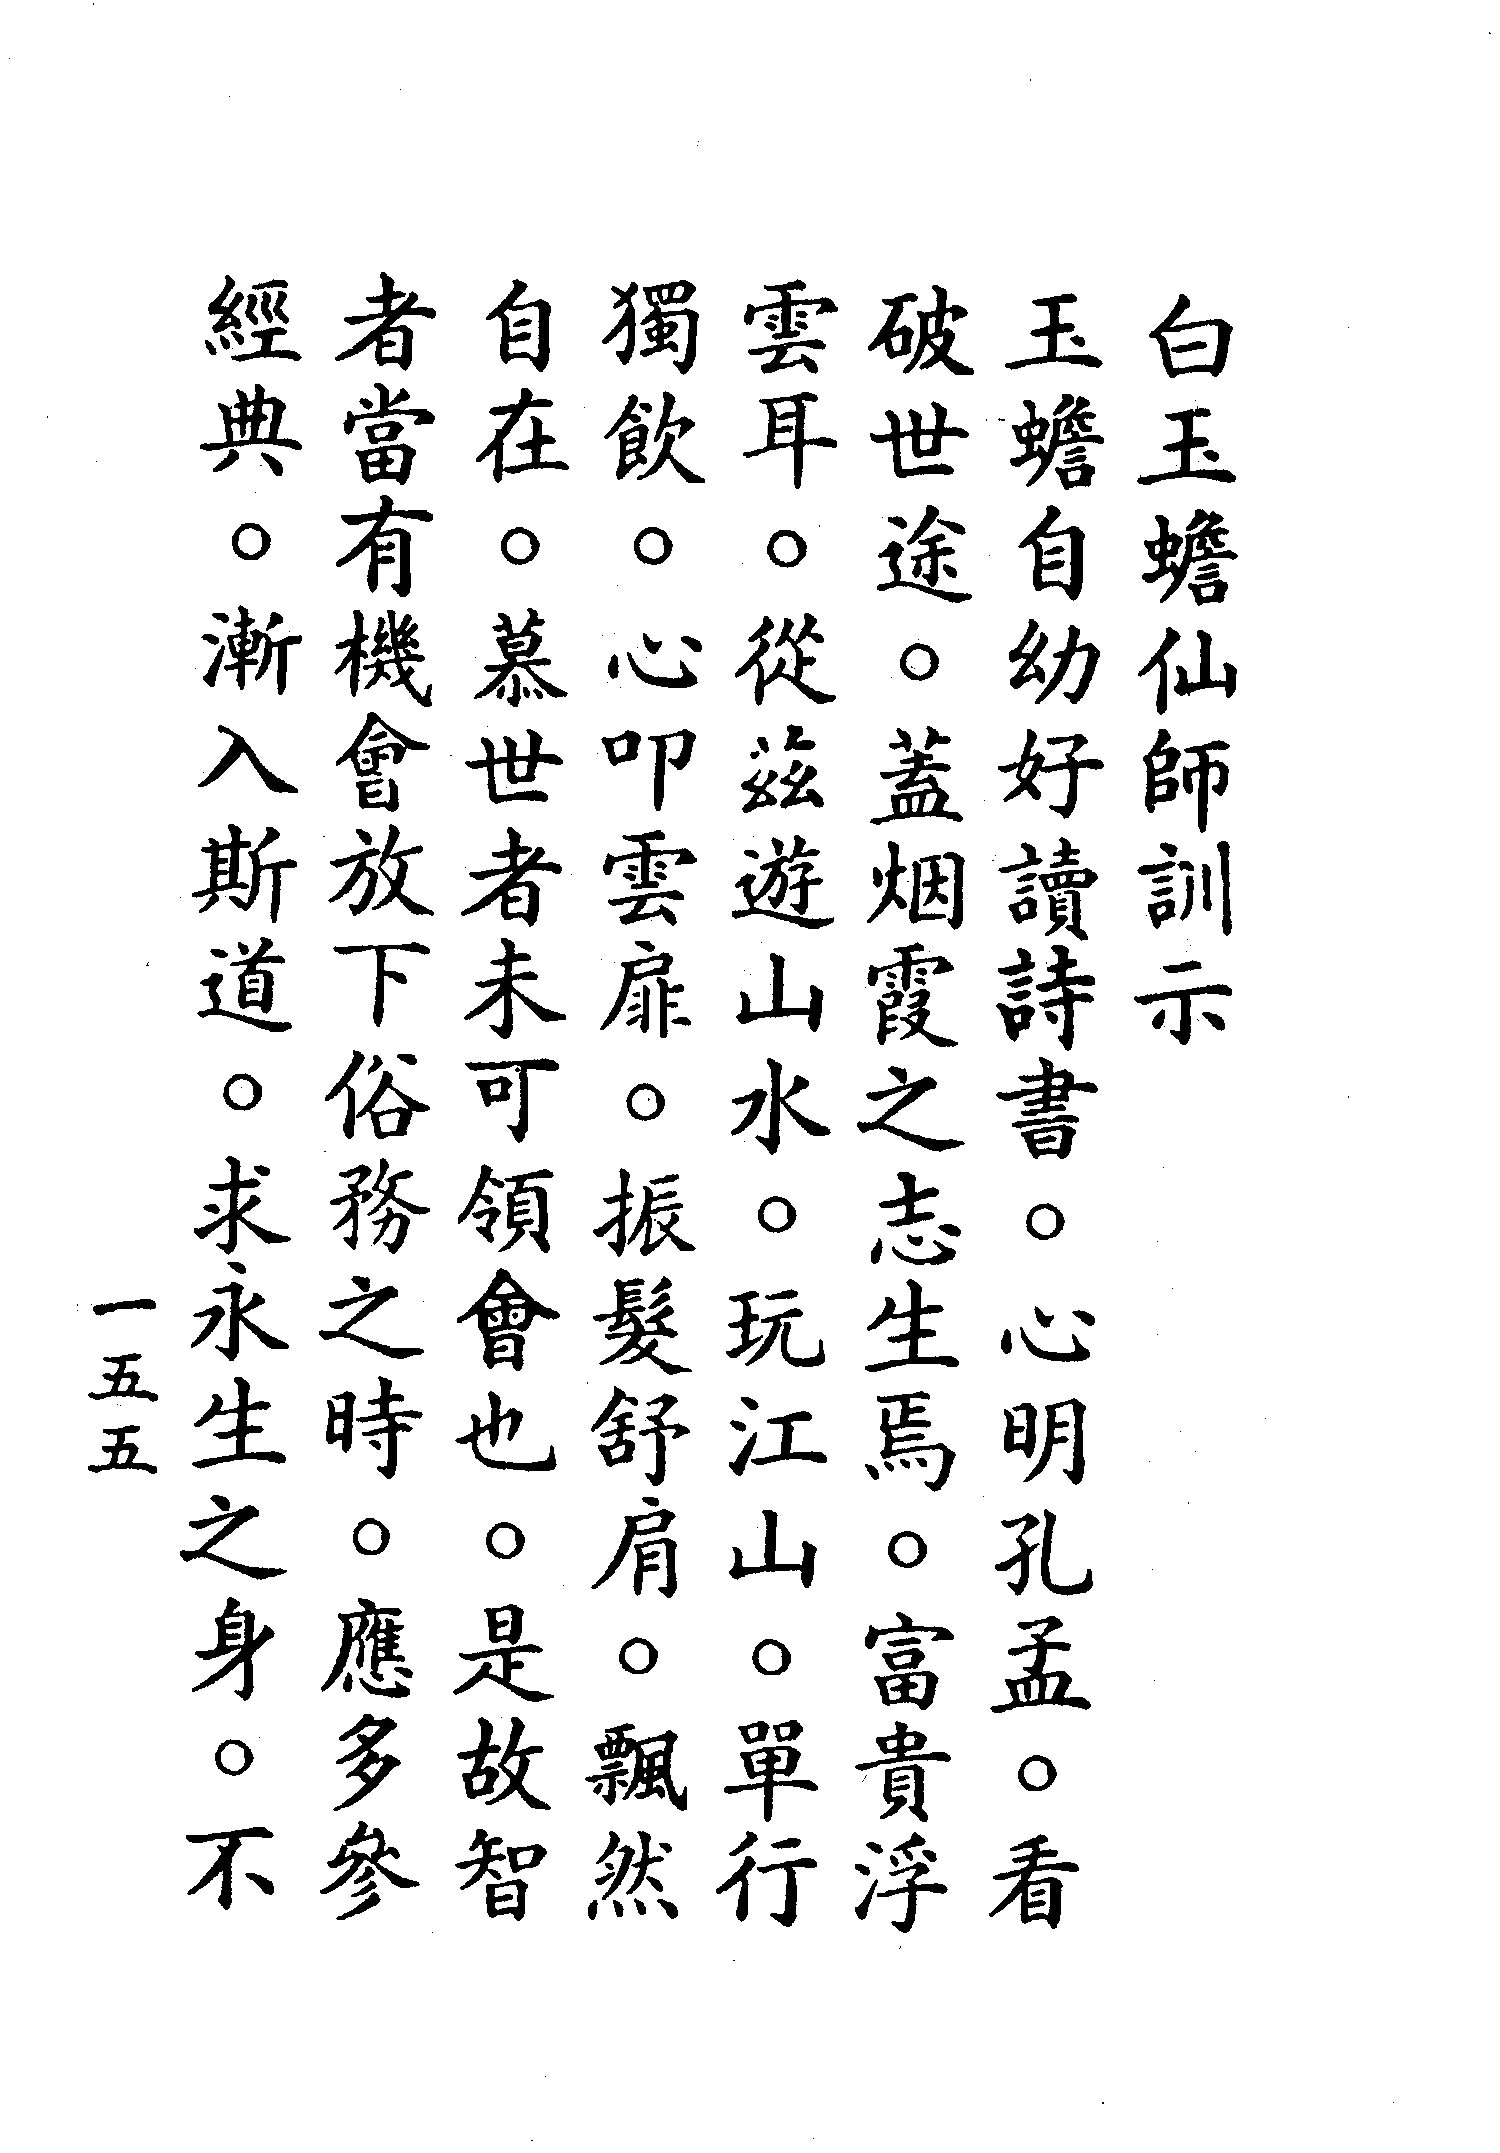 白玉蟾仙師訓示
玉蟾自幼好讀詩書。心明孔孟。看
破世途。蓋烟霞之志生焉。富貴浮
雲耳。從茲遊山水。玩江山。單行
獨飲。心叩雲扉。振髮舒肩。飄然
自在。慕世者未可領會也。是故智
者當有機會放下俗務之時。應多參
經典。漸入斯道。求永生之身。不
一五五